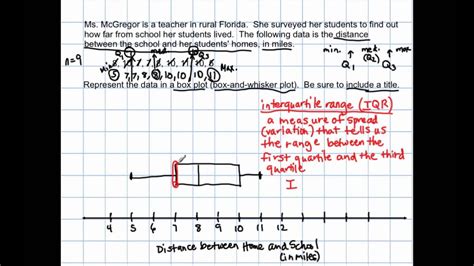 Ms. McGregor is a teacher in rural Florida. She surveyed her students to find out
how far from school her students lived. The following data is the distance
between the school and her students' homes, in miles.
min. med. max.
Q1 (Q2) Q3
n=9
Min 5, 7, 7, 8, 8, 10, 10, 11 Max.
Represent the data in a box plot (box-and-whisker plot). Be sure to include a title.
interquartile range (IQR)
a measure of spread
(variation) that tells us
the range between the
first quartile and the third
quartile
I
4 5 6 7 8 9 10 11 12
Distance between Home and School
(in miles)